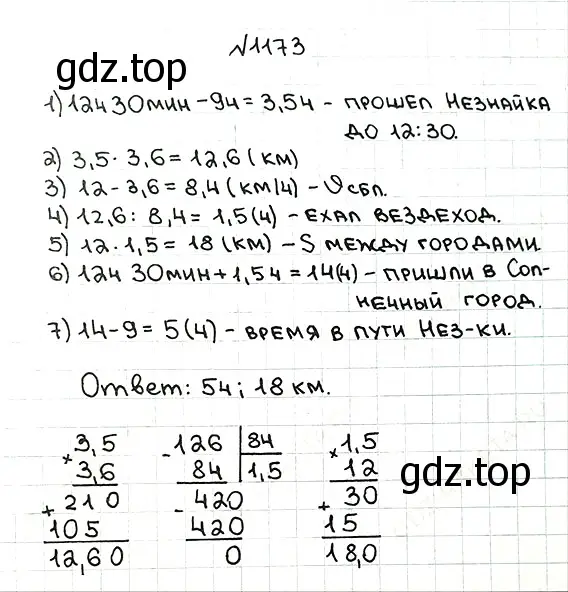 №1173
gdz.top
1) 12ч 30мин – 9ч = 3,5ч – прошел Незнайка
до 12:30.
2) 3,5 · 3,6 = 12,6 (км)
3) 12 – 3,6 = 8,4 (км/ч) – υ сбл.
4) 12,6 : 8,4 = 1,5 (ч) – ехал вездеход.
5) 12 · 1,5 = 18 (км) – S между городами.
6) 12ч 30мин + 1,5ч = 14 (ч) – пришли в Сол-
нечный город.
7) 14 – 9 = 5 (ч) – время в пути Нез-ки.
Ответ: 5ч; 18 км.
× 3,5
3,6
+ 210
105
12,60
- 126 | 84
84 | 1,5
- 420
420
0
× 1,5
12
+ 30
15
18,0
gdz.top